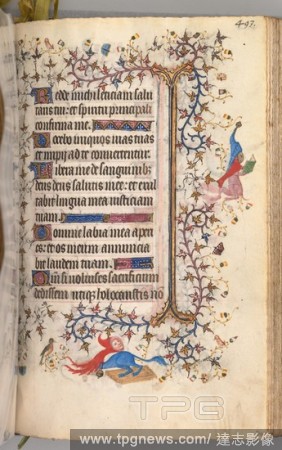 497.
Redde michi leticiam salu
taris tui: et spiritu principali
confirma me.
Docebo iniquos vias tuas
et impij ad te convertentur.
Libera me de sanguinib;
deus deus salutis mee: et exul
tabit lingua mea iusticiam
tuam.
Domine labia mea aperi
es: et os meum annuncia
bit laudem tuam.
Qm si voluisses sacrificium
dedissem utique holocaustis no
TPG
www.tpgnews.com/達志影像